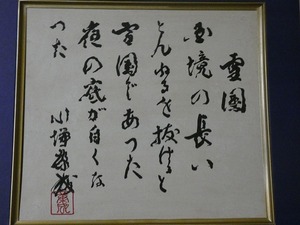 雪國
国境の長い
とんねるを抜けると
雪國であつた
夜の底が白くな
つた
川端康成